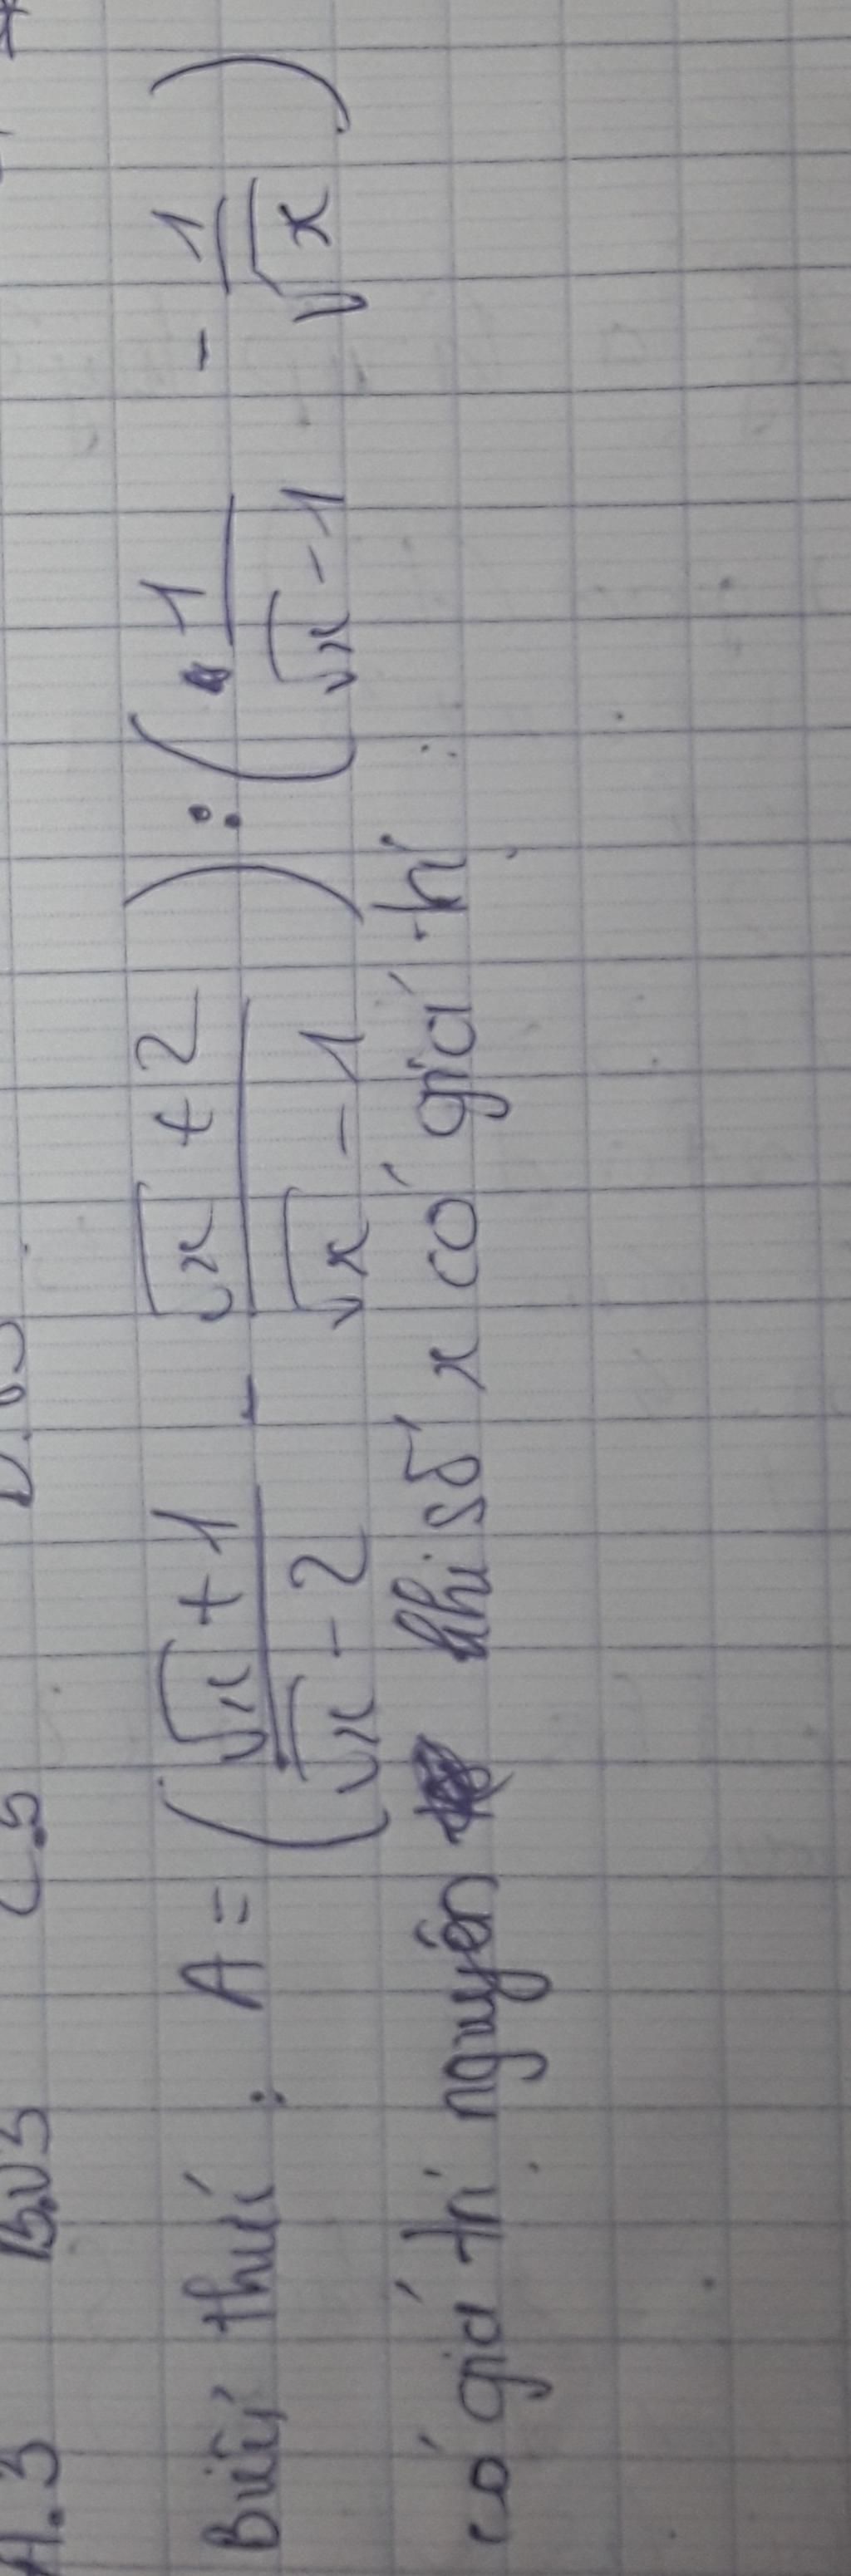 A.3 B.√3 C.5
Biểu thức : A = ( (√x + 1)/(√x - 2) - (√x + 2)/(√x - 1) ) : ( 1/(√x - 1) - 1/√x )
có giá trị nguyên khi số x có giá trị :